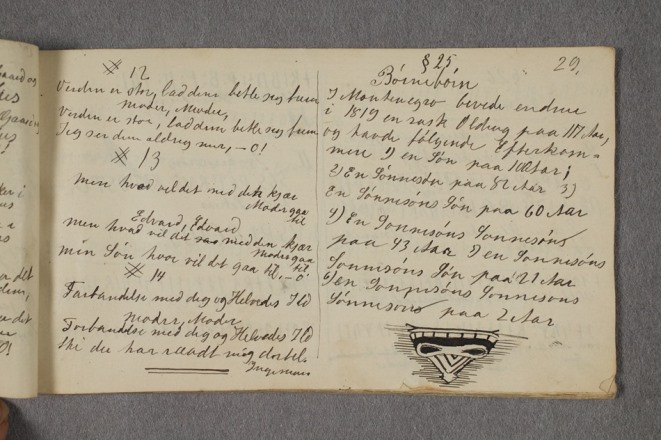 # 12
Verden er stor, lad dem betle seg frem
Moder, Moder,
Verden er stor, lad dem betle seg frem
Jeg ser dem aldrig mer, – O!
# 13
men hvad vil det med den kjær
Moder gaa
til
Edvard, Edvard
men hvad vil det med den kjær
Moder gaa
min Søn hvor vil det gaa til, – O
# 14
Forbandelse med dig og Helvedes Ild
Moder, Moder
Forbandelse med dig og Helvedes Ild
thi du har raadt mig dertil.
§ 25 29,
Børnebørn
I Montenegro levede endnu
i 1819 en rask Olding paa 117 Aar,
og havde følgende Efterkom=
mere 1) en Søn paa 100 Aar;
2) En Sønnesøn paa 82 Aar 3)
En Sønnesøns Søn paa 60 Aar
4) En Sønnesøns Sønnesøn
paa 43 Aar 5) en Sønnesøns
Sønnesøns Søn paa 21 Aar
6) en Sønnesøns Sønnesøns
Sønnesøn paa 2 Aar